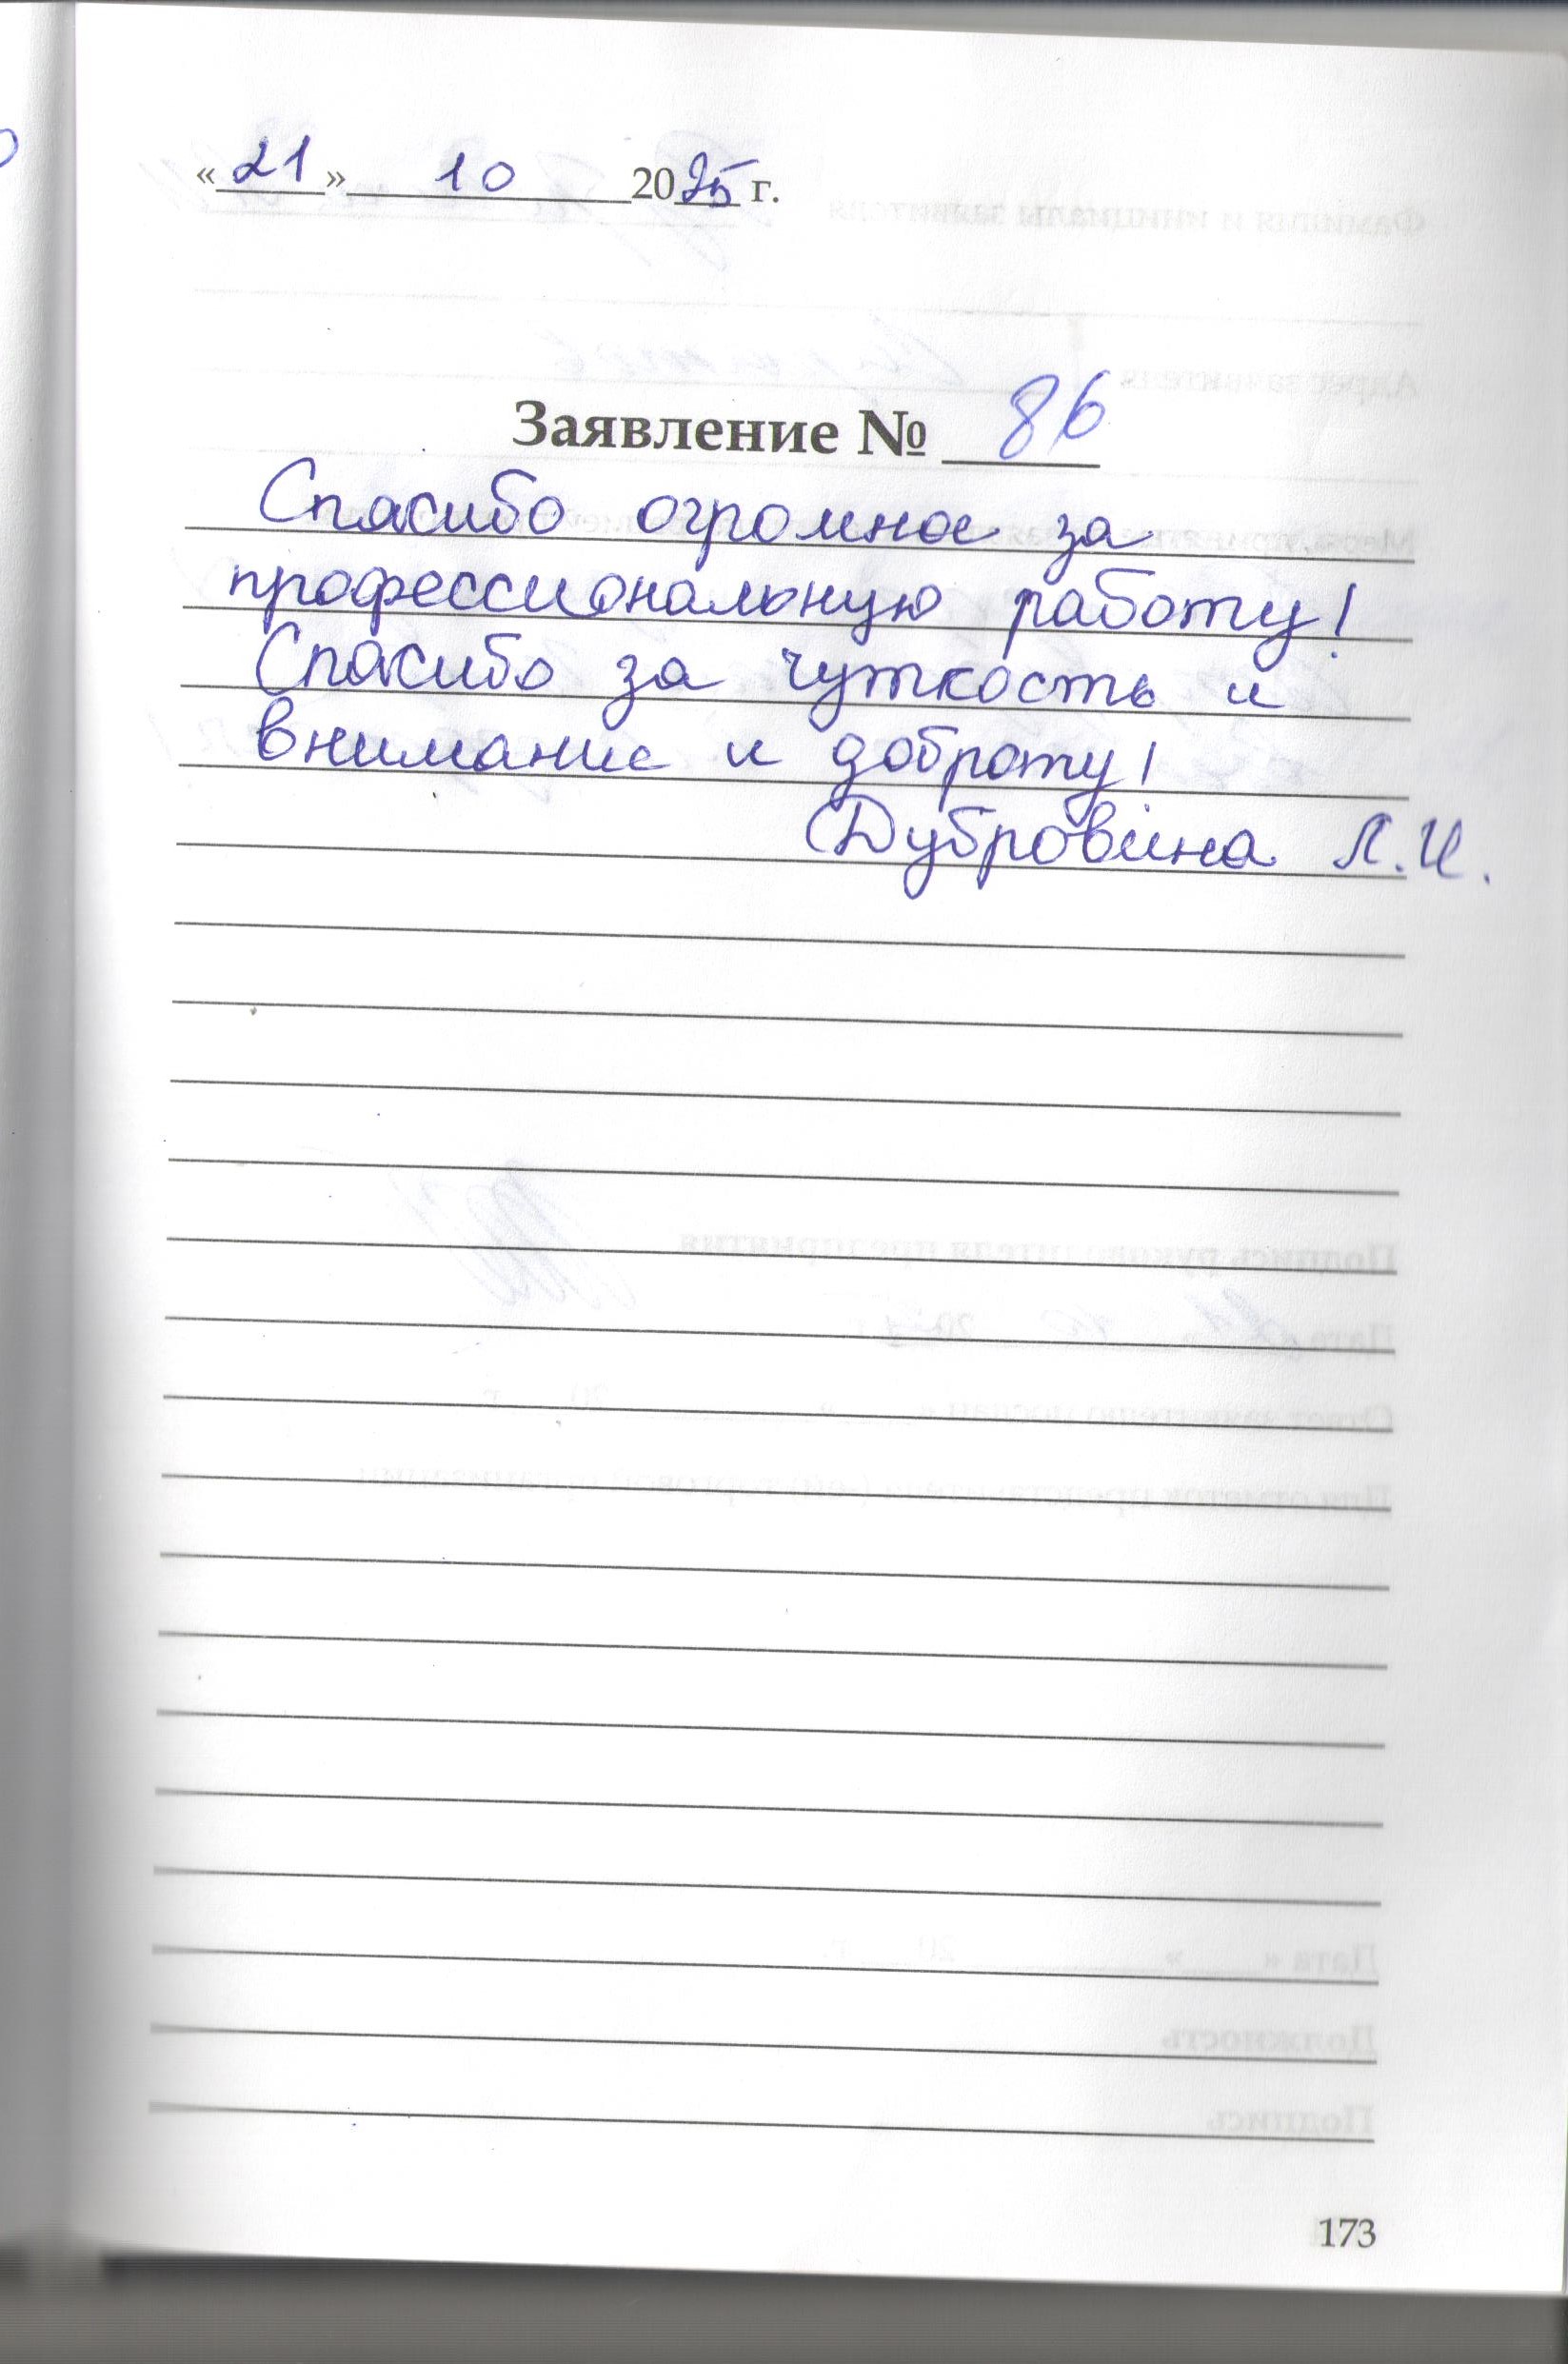 «21» 10 2025 г.
Заявление № 86
Спасибо огромное за
профессиональную работу!
Спасибо за чуткость и
внимание и доброту!
Дубровина Л.И.
173